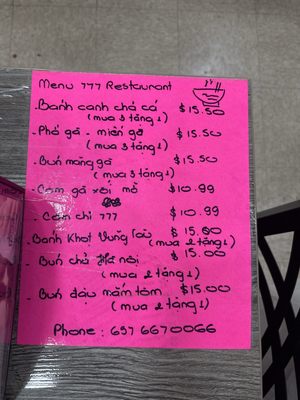 Menu 777 Restaurant
. Bánh canh chả cá $15.50
(mua 3 tặng 1)
. Phở gà - miến gà $15.50
(mua 3 tặng 1)
. Bún măng gà $15.50
(mua 3 tặng 1)
. Cơm gà xối mỡ $10.99
. Cơm chỉ 777 $10.99
. Bánh Khọt Vũng Tàu $15.00
(mua 2 tặng 1)
- Bún chả Hà nội $15.00
(mua 2 tặng 1)
- Bún đậu mắm tôm $15.00
(mua 2 tặng 1)
Phone : 657 6670066